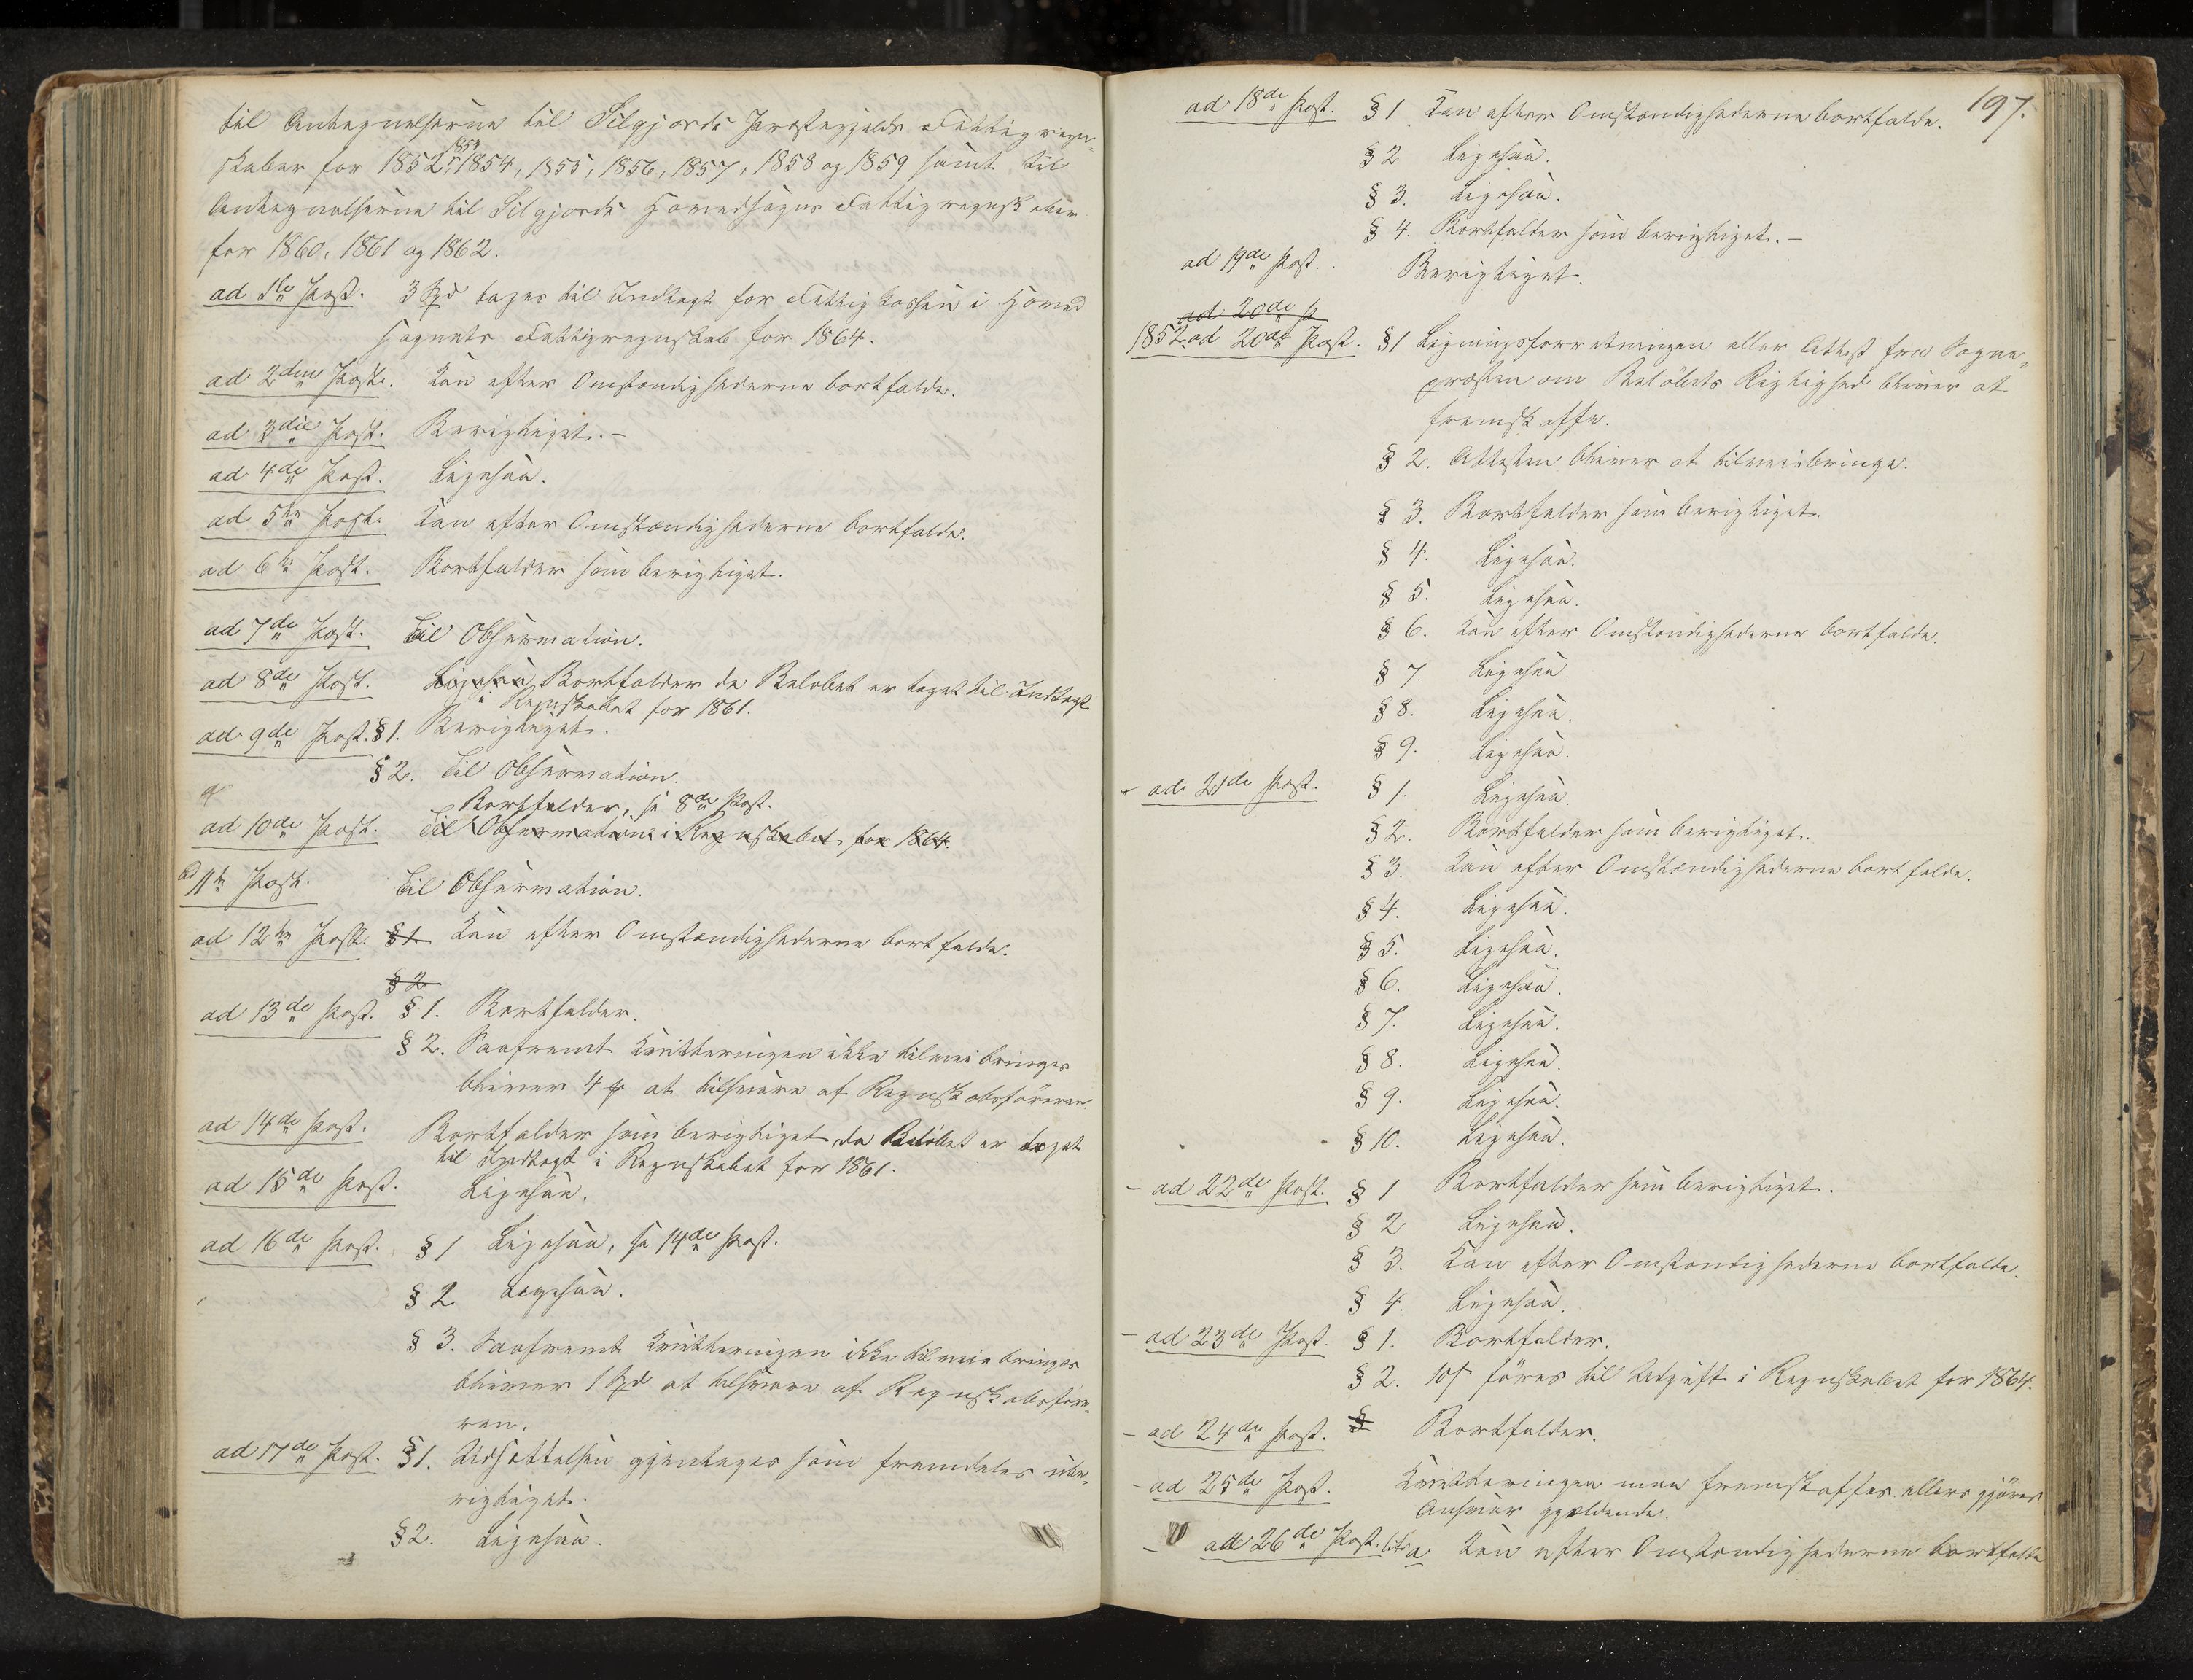 til Antegnelserne til Silgjords Præstegjelds Fattigregn„
skaber for 1852, 1853, 1854, 1855, 1856, 1857, 1858 og 1859 samt til
Antegnelserne til Silgjords Hovedsogns Fattigregnskaber
for 1860, 1861 og 1862.
ad 1ste Post. 3 Spd tages til Indtægt for Fattigkassen i Hoved
Sognets Fattigregnskab for 1864.
ad 2den Post. Kan efter Omstændighederne bortfalde.
ad 3die Post. Berigtiget.-
ad 4de Post. Ligesaa.
ad 5te Post. Kan efter Omstændighederne bortfalde.
ad 6te Post. Bortfalder som berigtiget.
ad 7de Post. Til Observation.
ad 8de Post. Ligesaa Bortfalder da Beløbet er taget til Indtægt
i Regnskabet for 1861.
ad 9de Post. § 1. Berigtiget.
§ 2. Til Observation.
Bortfalder, se 8de Post.
ad 10de Post. Til Observation i Regnskabet for 1864.
ad 11te Post. Til Observation.
ad 12te Post. § 1. Kan efter Omstændighederne bortfalde.
§ 2
ad 13de Post. § 1. Bortfalder.
§ 2. Saafremt Kvitteringen ikke tilveiebringes
bliver 4 at tilsvare af Regnskabsføreren.
ad 14de Post. Bortfalder som berigtiget, da Beløbet er taget
til Indtægt i Regnskabet for 1861.
ad 15de Post. Ligesaa.
ad 16de Post. § 1 Ligesaa, se 14de Post.
§ 2 Ligesaa.
§ 3. Saafremt Kvitteringen ikke tilveiebringes
bliver 1 Spd at tilsvare af Regnskabsføre„
ren.
ad 17de Post. § 1. Udsættelsen gjentages som fremdeles ube„
rigtiget.
§ 2. Ligesaa.
197.
ad 18de Post. § 1 Kan efter Omstændighederne bortfalde.
§ 2 Ligesaa.
§ 3. Ligesaa.
§ 4. Bortfalder som berigtiget.-
ad 19de Post. Berigtiget.
ad 20de P
1852 ad 20de Post. § 1 Ligningsforretningen eller Attest fra Sogne„
præsten om Beløbets Rigtighed bliver at
fremskaffe.
§ 2. Attesten bliver at tilveiebringe.
§ 3. Bortfalder som berigtiget.
§ 4. Ligesaa.
§ 5. Ligesaa.
§ 6. Kan efter Omstændighederne bortfalde.
§ 7. Ligesaa.
§ 8. Ligesaa.
§ 9. Ligesaa.
- ad 21de Post. § 1. Ligesaa.
§ 2. Bortfalder som berigtiget.
§ 3. Kan efter Omstændighederne bortfalde.
§ 4. Ligesaa.
§ 5. Ligesaa.
§ 6. Ligesaa.
§ 7. Ligesaa.
§ 8. Ligesaa.
§ 9. Ligesaa.
§ 10. Ligesaa.
- ad 22de Post. § 1 Bortfalder som berigtiget.
§ 2 Ligesaa.
§ 3. Kan efter Omstændighederne bortfalde.
§ 4. Ligesaa.
- ad 23de Post. § 1. Bortfalder.
§ 2. føres til Udgift i Regnskabet for 1864.
- ad 24de Post. § Bortfalder.
- ad 25de Post. Kvitteringen maa fremskaffes ellers gjøres
Ansvar gjældende.
- ad 26de Post. litr a Kan efter Omstændighederne bortfalde